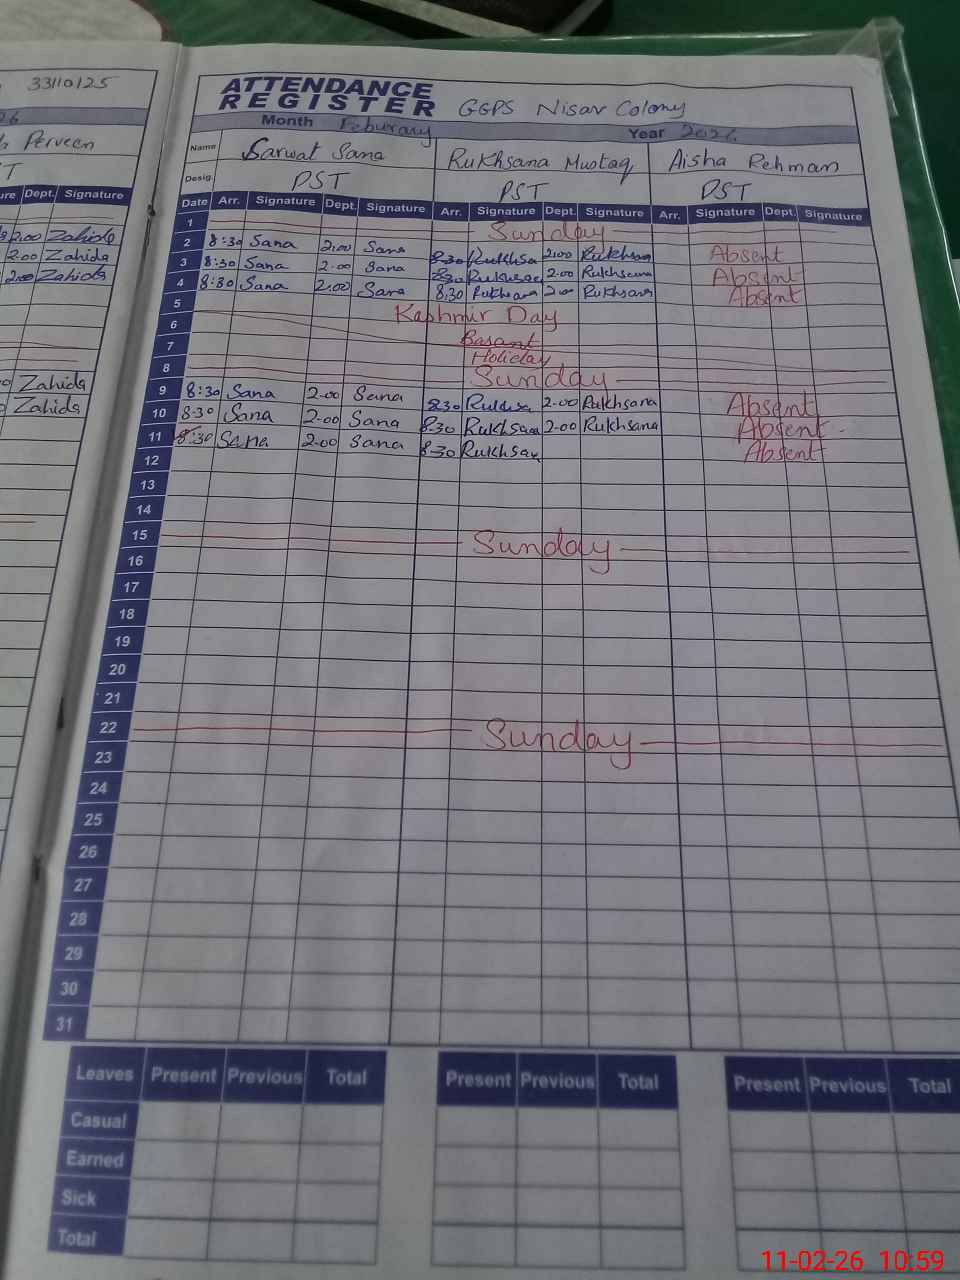 33110125
26
Perveen
Dept. Signature
2:00 Zahida
2:00 Zahida
2:00 Zahida
Zahida
Zahida
ATTENDANCE
REGISTER GGPS Nisar Colony
Month Feburary Year 2026
Name Sarwat Sana Rukhsana Mustaq Aisha Rehman
Desig. PST PST PST
Date Arr. Signature Dept. Signature Arr. Signature Dept. Signature Arr. Signature Dept. Signature
1 Sunday
2 8:30 Sana 2:00 Sana 8:30 Rukhsa 2:00 Rukhsana Absent
3 8:30 Sana 2:00 Sana 8:30 Rukhsa 2:00 Rukhsana Absent
4 8:30 Sana 2:00 Sana 8:30 Rukhsana 2:00 Rukhsana Absent
5 Kashmir Day
6 Basant
7 Holiday
8 Sunday
9 8:30 Sana 2-00 Sana 8:30 Rukhsa 2-00 Rukhsana Absent
10 8-30 Sana 2-00 Sana 8-30 Rukhsana 2-00 Rukhsana Absent
11 8:30 Sana 2-00 Sana 8-30 Rukhsan Absent
12
13
14
15 Sunday
16
17
18
19
20
21
22 Sunday
23
24
25
26
27
28
29
30
31
Leaves Present Previous Total Present Previous Total Present Previous Total
Casual
Earned
Sick
Total
11-02-26 10:59